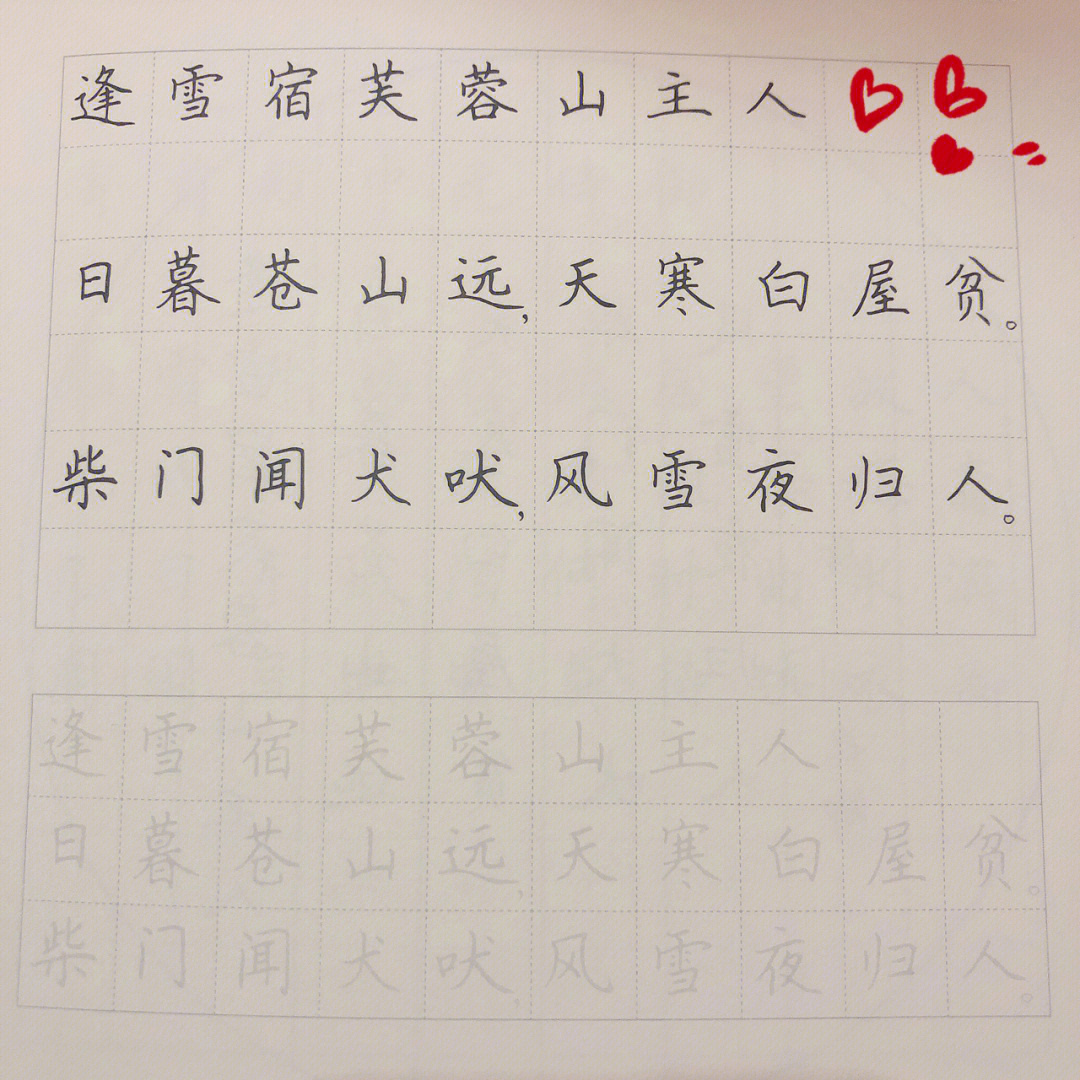 逢雪宿芙蓉山主人
日暮苍山远,天寒白屋贫。
柴门闻犬吠,风雪夜归人。
逢雪宿芙蓉山主人
日暮苍山远,天寒白屋贫。
柴门闻犬吠,风雪夜归人。